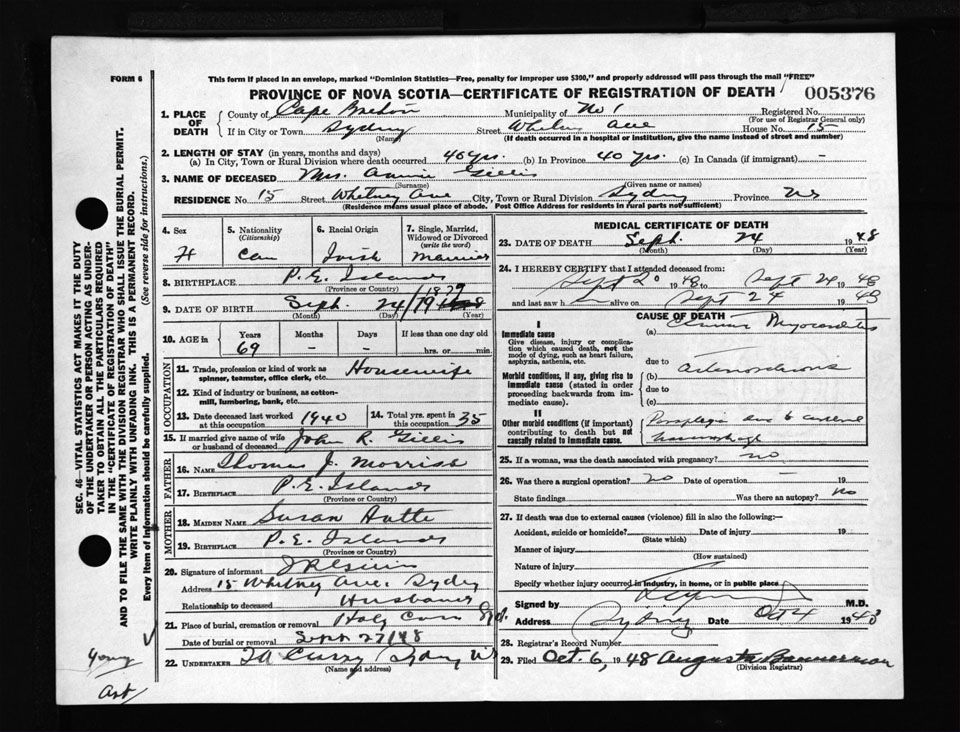 FORM 6
This form if placed in an envelope, marked "Dominion Statistics—Free, penalty for improper use $300," and properly addressed will pass through the mail "FREE"
PROVINCE OF NOVA SCOTIA—CERTIFICATE OF REGISTRATION OF DEATH 005376
1. PLACE OF DEATH County of Cape Breton Municipality of No 1 Registered No.
(For use of Registrar General only)
If in City or Town Sydney Street Whitney Ave House No. 15
(Name) (If death occurred in a hospital or institution, give the name instead of street and number)
2. LENGTH OF STAY (in years, months and days)
(a) In City, Town or Rural Division where death occurred 40 yrs. (b) In Province 40 yrs. (c) In Canada (if immigrant) —
3. NAME OF DECEASED Mrs. Annie Gillis
(Surname) (Given name or names)
RESIDENCE No. 15 Street Whitney Ave City, Town or Rural Division Sydney Province NS
(Residence means usual place of abode. Post Office Address for residents in rural parts not sufficient)
4. Sex 5. Nationality (Citizenship) 6. Racial Origin 7. Single, Married, Widowed or Divorced (write the word)
Can Irish Married
8. BIRTHPLACE P.E. Islands
(Province or Country)
9. DATE OF BIRTH Sept. 24/ 1879
(Month) (Day) (Year)
10. AGE in Years Months Days If less than one day old
69 – – hrs. or min.
OCCUPATION
11. Trade, profession or kind of work as spinner, teamster, office clerk, etc. Housewife
12. Kind of industry or business, as cotton-mill, lumbering, bank, etc.
13. Date deceased last worked at this occupation 1940 14. Total yrs. spent in this occupation 35
15. If married give name of wife or husband of deceased John R. Gillis
FATHER
16. NAME Thomas J. Morrish
17. BIRTHPLACE P.E. Islands
(Province or Country)
MOTHER
18. MAIDEN NAME Susan
19. BIRTHPLACE P.E. Islands
(Province or Country)
20. Signature of informant
Address 15 Whitney Ave. Sydney
Relationship to deceased Husband
21. Place of burial, cremation or removal Holy Cross
Date of burial or removal Sept 27/48
22. UNDERTAKER Curry Sydney NS
(Name and address)
MEDICAL CERTIFICATE OF DEATH
23. DATE OF DEATH Sept. 24 1948
(Month) (Day) (Year)
24. I HEREBY CERTIFY that I attended deceased from:
Sept 20 1948 to Sept 24 1948
and last saw h alive on Sept 24 1948
CAUSE OF DEATH
I
Immediate cause (a) Myocarditis
Give disease, injury or complication which caused death, not the mode of dying, such as heart failure, asphyxia, asthenia, etc.
due to
Morbid conditions, if any, giving rise to immediate cause (stated in order proceeding backwards from immediate cause).
(b) Arteriosclerosis
due to
(c)
II
Other morbid conditions (if important) contributing to death but not causally related to immediate cause.
due to cerebral
25. If a woman, was the death associated with pregnancy? no
26. Was there a surgical operation? no Date of operation — 19
State findings Was there an autopsy? no
27. If death was due to external causes (violence) fill in also the following:—
Accident, suicide or homicide? Date of injury 19
(State which)
Manner of injury
(How sustained)
Nature of injury
Specify whether injury occurred in industry, in home, or in public place
Signed by M.D.
Address Sydney Date Oct 4 1948
28. Registrar's Record Number
29. Filed Oct. 6, 1948 Augusta Bannerman
(Division Registrar)
SEC. 46—VITAL STATISTICS ACT MAKES IT THE DUTY
OF THE UNDERTAKER OR PERSON ACTING AS UNDER-
TAKER TO OBTAIN ALL THE PARTICULARS REQUIRED
IN THE "CERTIFICATE OF REGISTRATION OF DEATH"
AND TO FILE THE SAME WITH THE DIVISION REGISTRAR WHO SHALL ISSUE THE BURIAL PERMIT.
WRITE PLAINLY WITH UNFADING INK. THIS IS A PERMANENT RECORD.
Every item of information should be carefully supplied. (See reverse side for instructions.)